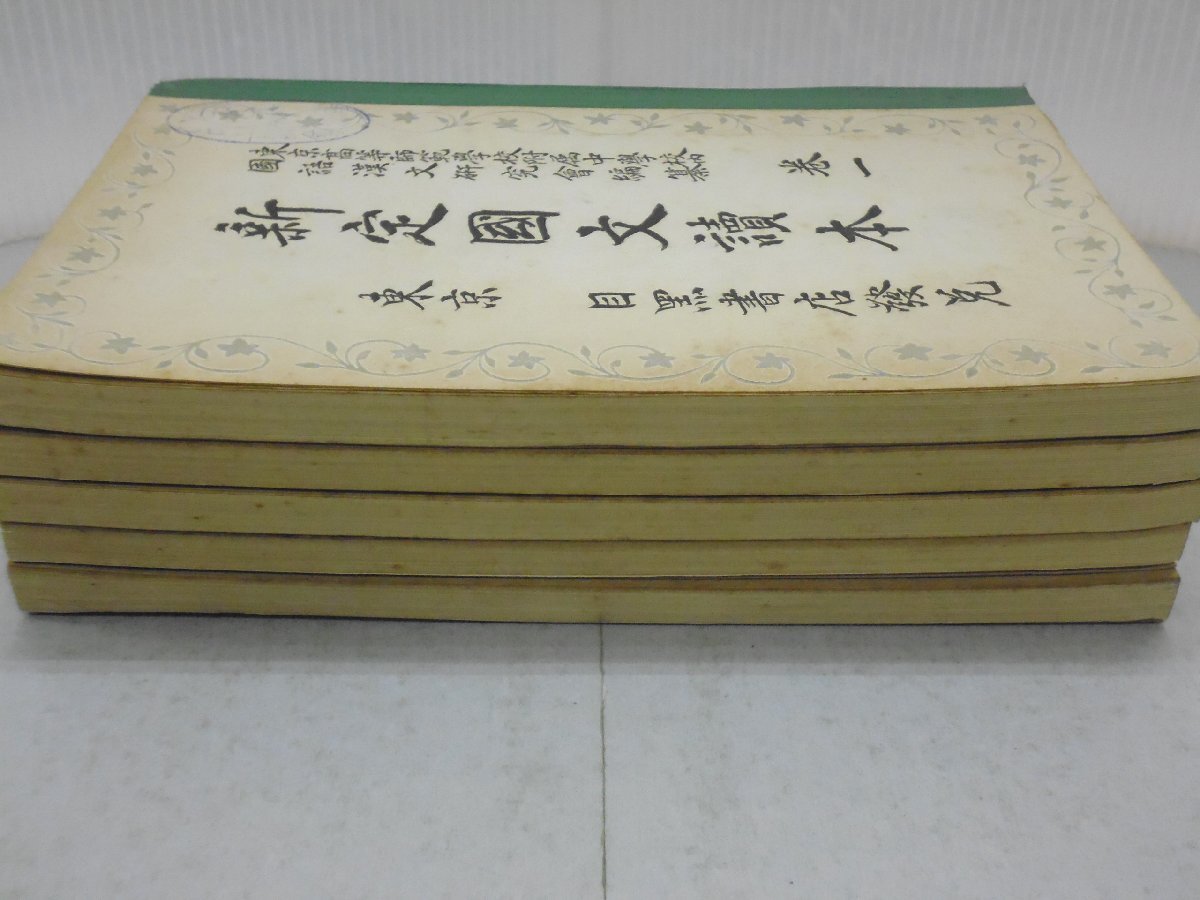 東京高等師範學校附屬中學校內
國語漢文研究會編纂
卷一
新定國文讀本
東京 目黑書店發兌